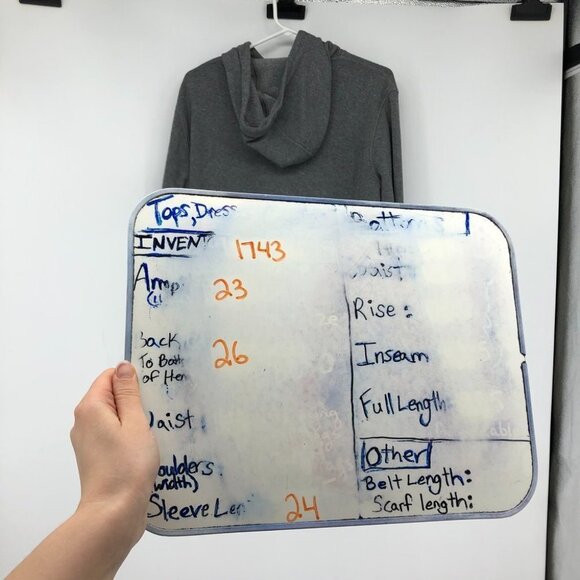 Tops, Dress
INVENT 1743
Armp 23
(11
Back 26
To Bott
of Hem
Waist
Shoulders
width)
Sleeve Len 24
Bottoms
Waist
Rise:
Inseam
Full Length
Other
Belt Length:
Scarf length: